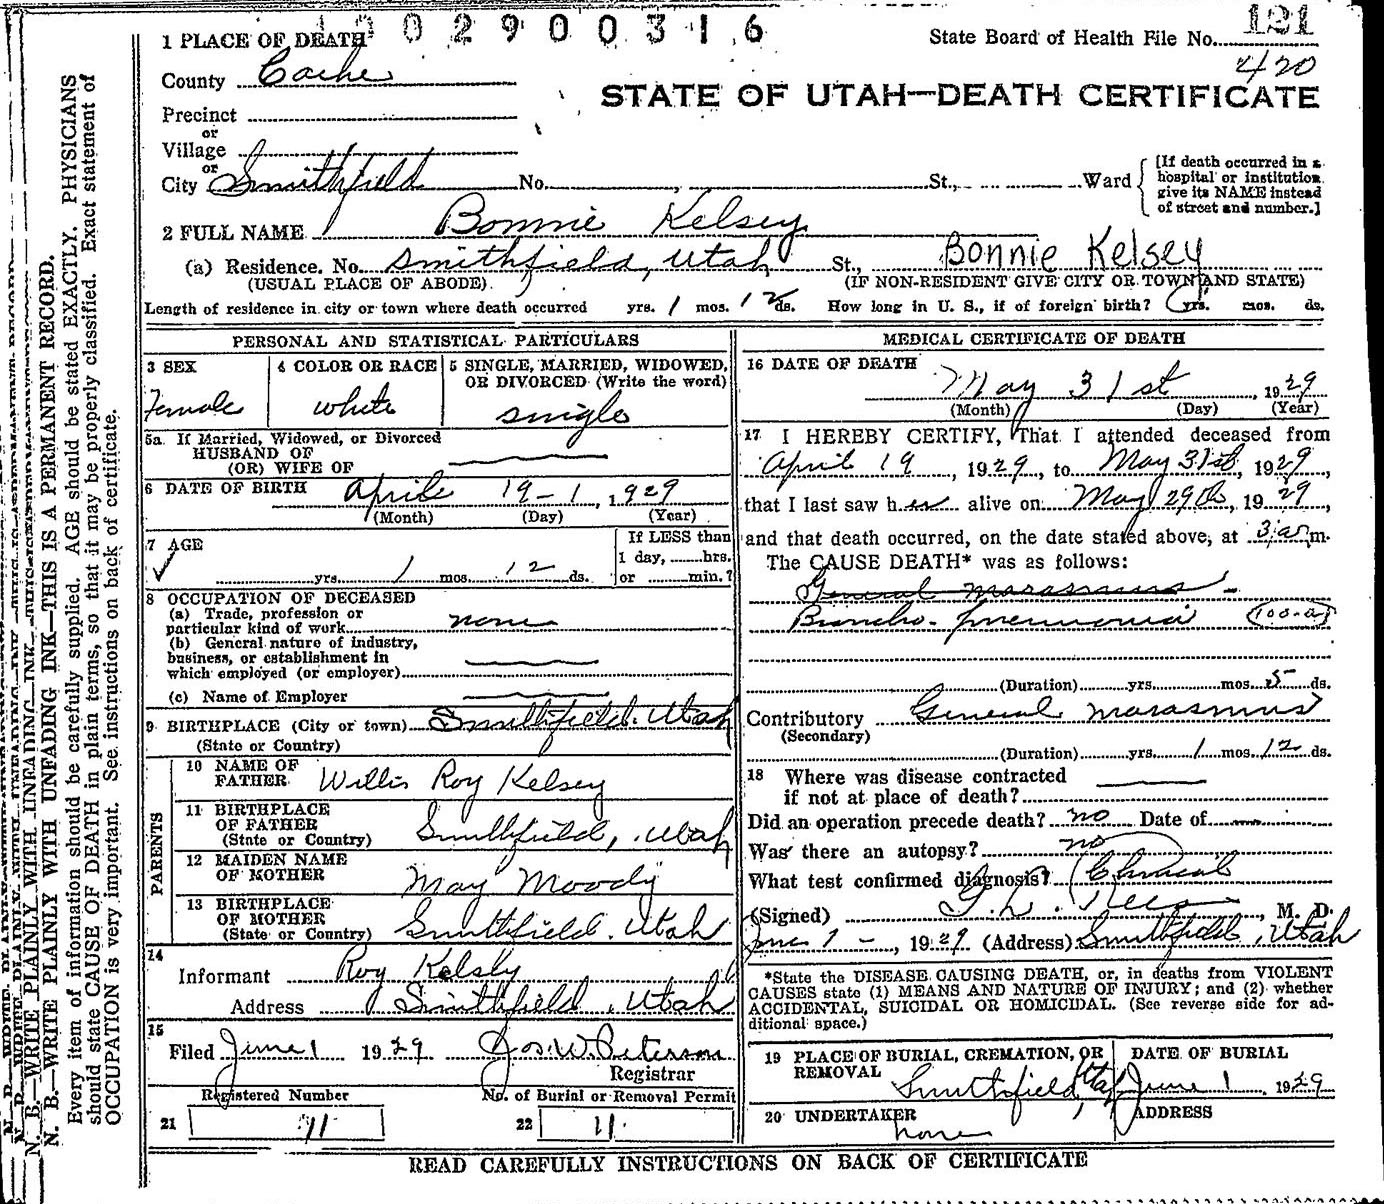 10 0 2 9 0 0 3 1 6
121
State Board of Health File No.
420
1 PLACE OF DEATH
County Cache
STATE OF UTAH—DEATH CERTIFICATE
Precinct
or
Village
or
City Smithfield No. , St., Ward
[If death occurred in a hospital or institution give its NAME instead of street and number.]
2 FULL NAME Bonnie Kelsey
(a) Residence. No. Smithfield, Utah St., Bonnie Kelsey
(USUAL PLACE OF ABODE) (IF NON-RESIDENT GIVE CITY OR TOWN AND STATE)
Length of residence in city or town where death occurred yrs. 1 mos. 12 ds. How long in U. S., if of foreign birth? yrs. mos. ds.
PERSONAL AND STATISTICAL PARTICULARS
3 SEX
Female
4 COLOR OR RACE
white
5 SINGLE, MARRIED, WIDOWED,
OR DIVORCED (Write the word)
single
5a. If Married, Widowed, or Divorced
HUSBAND OF
(OR) WIFE OF
6 DATE OF BIRTH April 19-1, 1929
(Month) (Day) (Year)
7 AGE
yrs. 1 mos. 12 ds.
If LESS than
1 day, hrs.
or min.?
8 OCCUPATION OF DECEASED
(a) Trade, profession or
particular kind of work none
(b) General nature of industry,
business, or establishment in
which employed (or employer)
(c) Name of Employer
9 BIRTHPLACE (City or town) Smithfield. Utah
(State or Country)
PARENTS
10 NAME OF
FATHER Willis Roy Kelsey
11 BIRTHPLACE
OF FATHER
(State or Country) Smithfield, Utah
12 MAIDEN NAME
OF MOTHER May Moody
13 BIRTHPLACE
OF MOTHER
(State or Country) Smithfield. Utah
14
Informant Roy Kelsey
Address Smithfield, Utah
15
Filed June 1 1929 Jos. W. Peterson
Registrar
Registered Number No. of Burial or Removal Permit
21 11 22 11.
MEDICAL CERTIFICATE OF DEATH
16 DATE OF DEATH
May 31st, 1929
(Month) (Day) (Year)
17 I HEREBY CERTIFY, That I attended deceased from
April 19, 1929, to May 31st, 1929,
that I last saw her alive on May 29th, 1929,
and that death occurred, on the date stated above, at 3:a.m.
The CAUSE DEATH* was as follows:
General marasmus -
Broncho-pneumonia (100-a)
(Duration) yrs. mos. 5 ds.
Contributory General marasmus
(Secondary)
(Duration) yrs. 1 mos. 12 ds.
18 Where was disease contracted
if not at place of death?
Did an operation precede death? no Date of
Was there an autopsy? no
What test confirmed diagnosis? Clinical
(Signed) G. L. Rees, M. D.
June 1 -, 1929 (Address) Smithfield, Utah
*State the DISEASE CAUSING DEATH, or, in deaths from VIOLENT
CAUSES state (1) MEANS AND NATURE OF INJURY; and (2) whether
ACCIDENTAL, SUICIDAL OR HOMICIDAL. (See reverse side for ad-
ditional space.)
19 PLACE OF BURIAL, CREMATION, OR
REMOVAL
Smithfield, Utah
DATE OF BURIAL
June 1 1929
20 UNDERTAKER
none
ADDRESS
READ CAREFULLY INSTRUCTIONS ON BACK OF CERTIFICATE
N. B.—WRITE PLAINLY WITH UNFADING INK—THIS IS A PERMANENT RECORD.
Every item of information should be carefully supplied. AGE should be stated EXACTLY. PHYSICIANS
should state CAUSE OF DEATH in plain terms, so that it may be properly classified. Exact statement of
OCCUPATION is very important. See instructions on back of certificate.